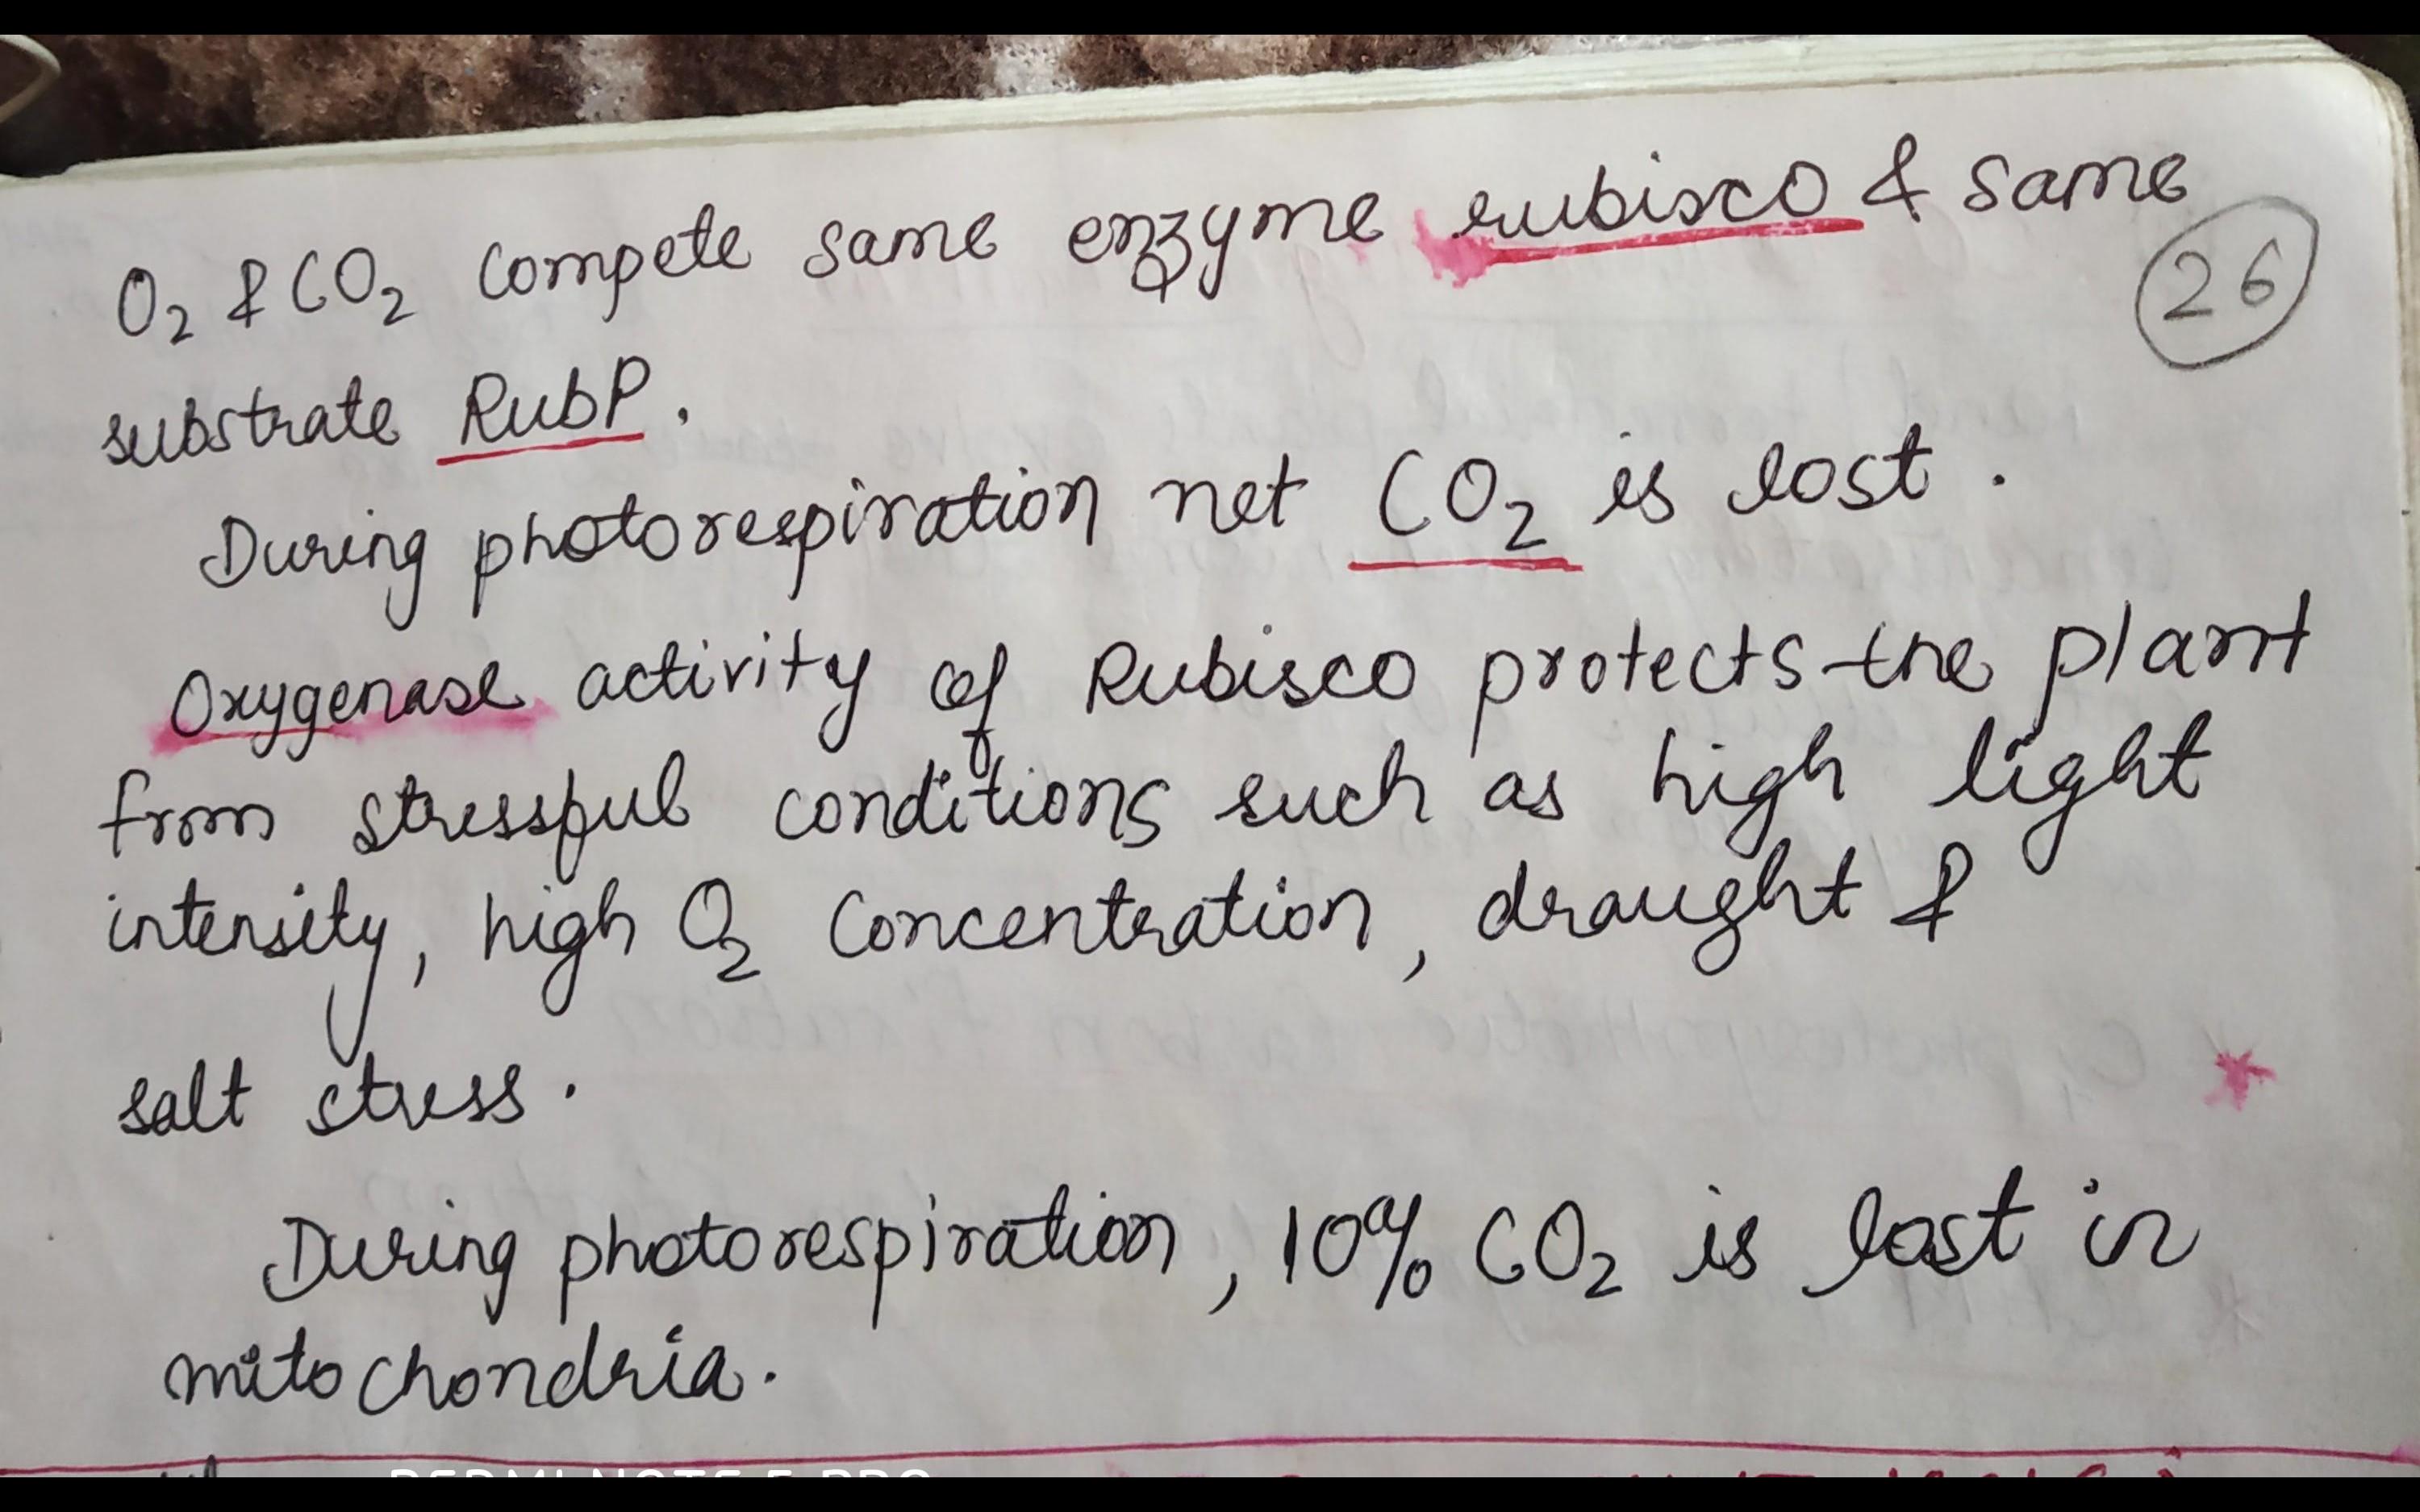 O₂ & CO₂ compete same enzyme rubisco & same
26
substrate RubP.
During photorespiration net CO₂ is lost.
Oxygenase activity of Rubisco protects the plant
from stressful conditions such as high light
intensity, high O₂ concentration, draught &
salt stress.
During photorespiration, 10% CO₂ is lost in
mitochondria.